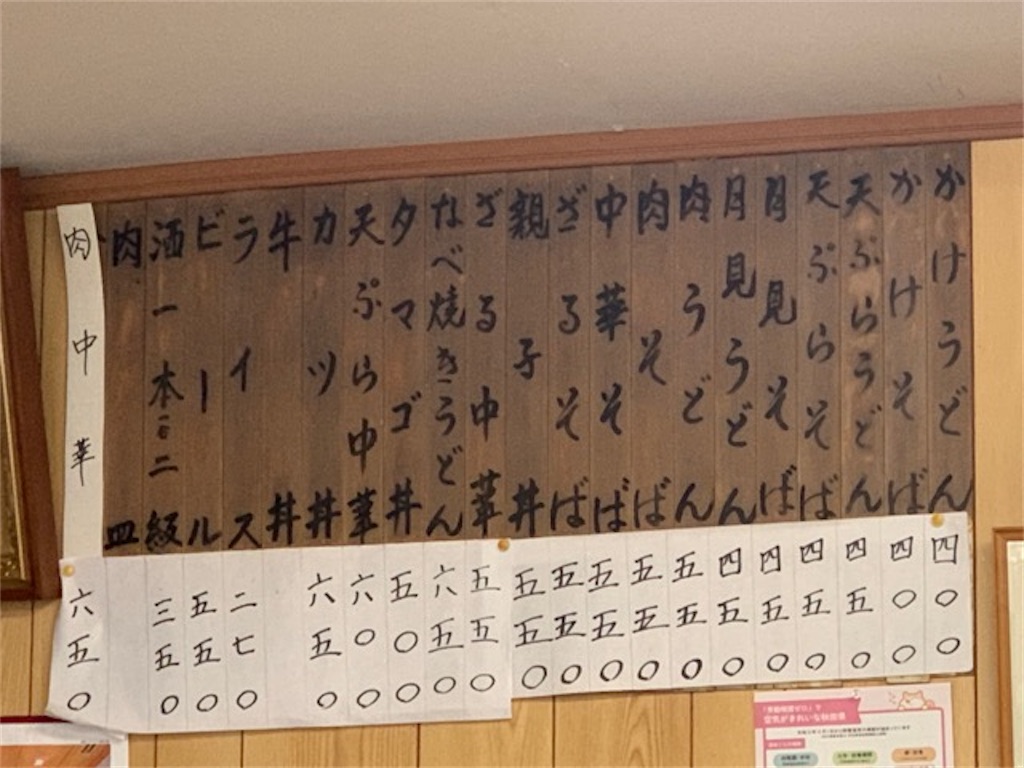 かけうどん 四〇〇
かけそば 四〇〇
天ぷらうどん 四五〇
天ぷらそば 四五〇
月見そば 四五〇
月見うどん 四五〇
肉うどん 五五〇
肉そば 五五〇
中華そば 五五〇
ざるそば 五五〇
親子丼 五五〇
ざる中華 五五〇
なべ焼きうどん 六五〇
タマゴ丼 五〇〇
天ぷら中華 六〇〇
カツ丼 六五〇
牛丼
ライス 二七〇
ビール 五五〇
酒一本 二級 三五〇
肉皿
肉中華 六五〇
「受動喫煙ゼロ」で
空気がきれいな秋田県